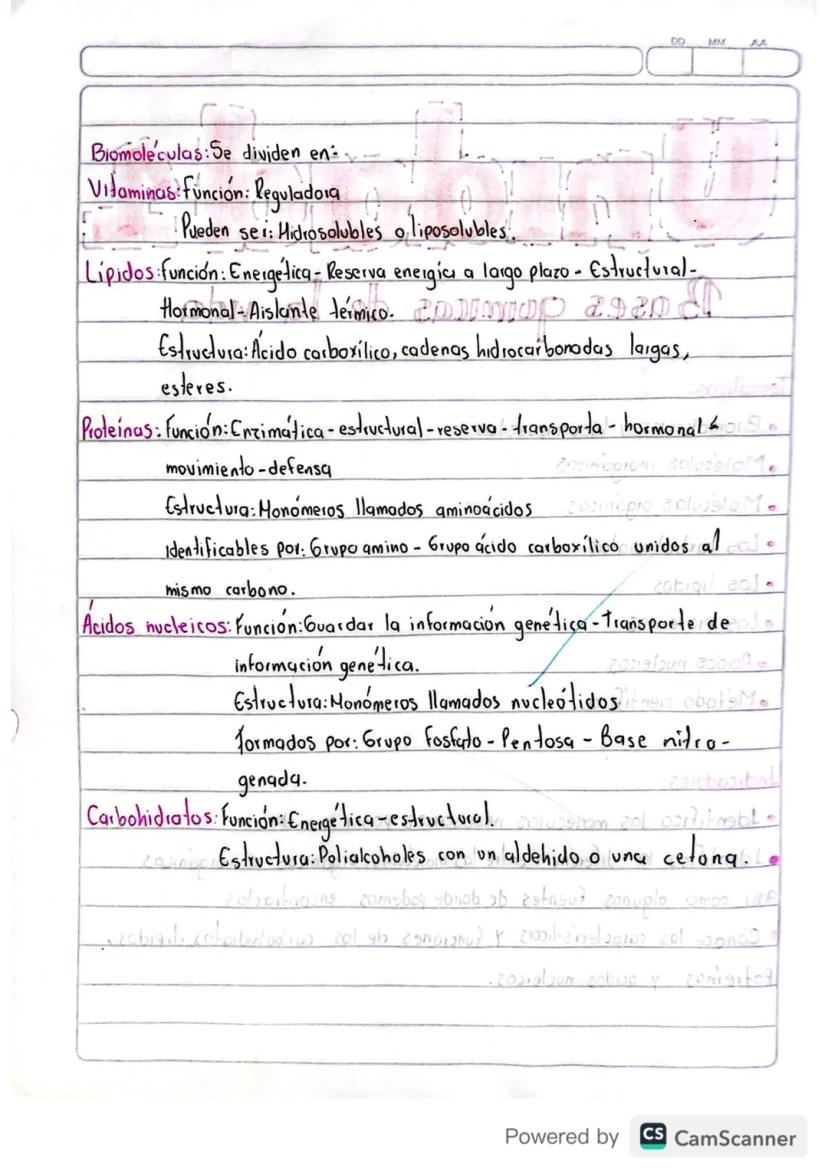 DD MM AA
Biomoléculas: Se dividen en:
Vitaminas: Función: Reguladora
Pueden ser: Hidrosolubles o liposolubles.
Lípidos: Función: Energética - Reserva energíca a largo plazo - Estructural -
Hormonal - Aislante térmico.
Estructura: Ácido carboxílico, cadenas hidrocarbonadas largas,
esteres.
Proteínas: Función: Enzimática - estructural - reserva - transporta - hormonal
movimiento - defensa
Estructura: Monómeros llamados aminoácidos
Identificables por: Grupo amino - Grupo ácido carboxílico unidos al
mismo carbono.
Ácidos nucleicos: Función: Guardar la información genética - Transporte de
información genética.
Estructura: Monómeros llamados nucleótidos
formados por: Grupo fosfato - Pentosa - Base nitro-
genada.
Carbohidratos: Función: Energética - estructural.
Estructura: Polialcoholes con un aldehido o una cetona.
Powered by CS CamScanner